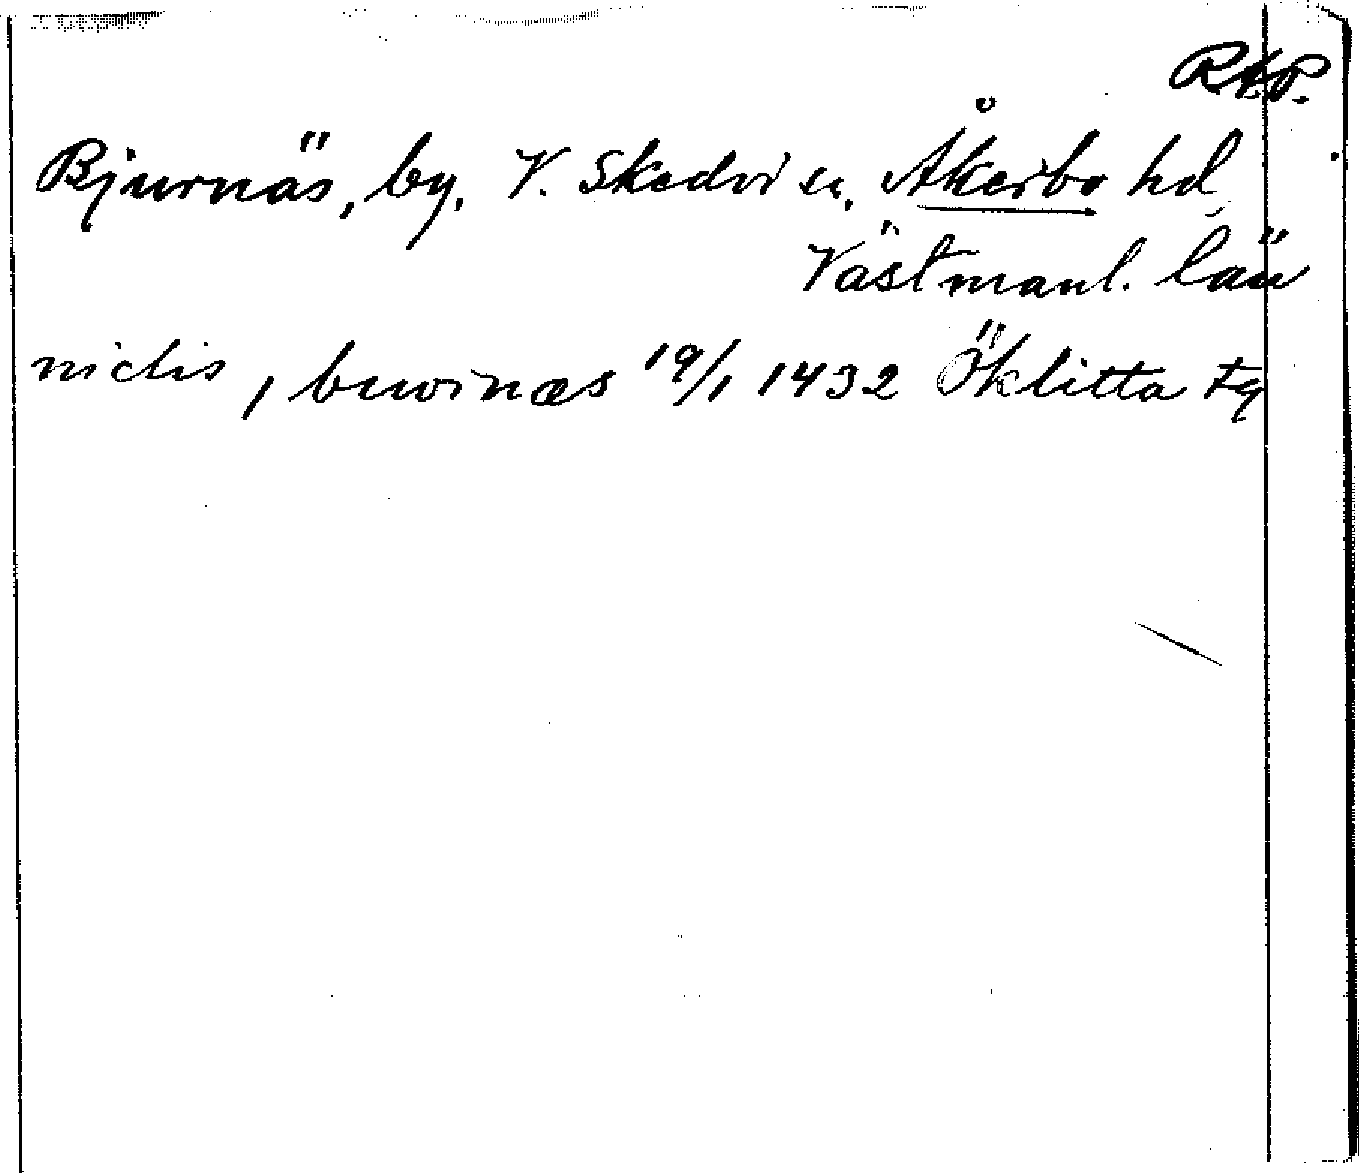 RAP.
Bjurnäs, by, V. Skedvi sn, Åkerbo hd,
Västmanl. län
nichis, biwrinæs 19/1 1432 Öklitta